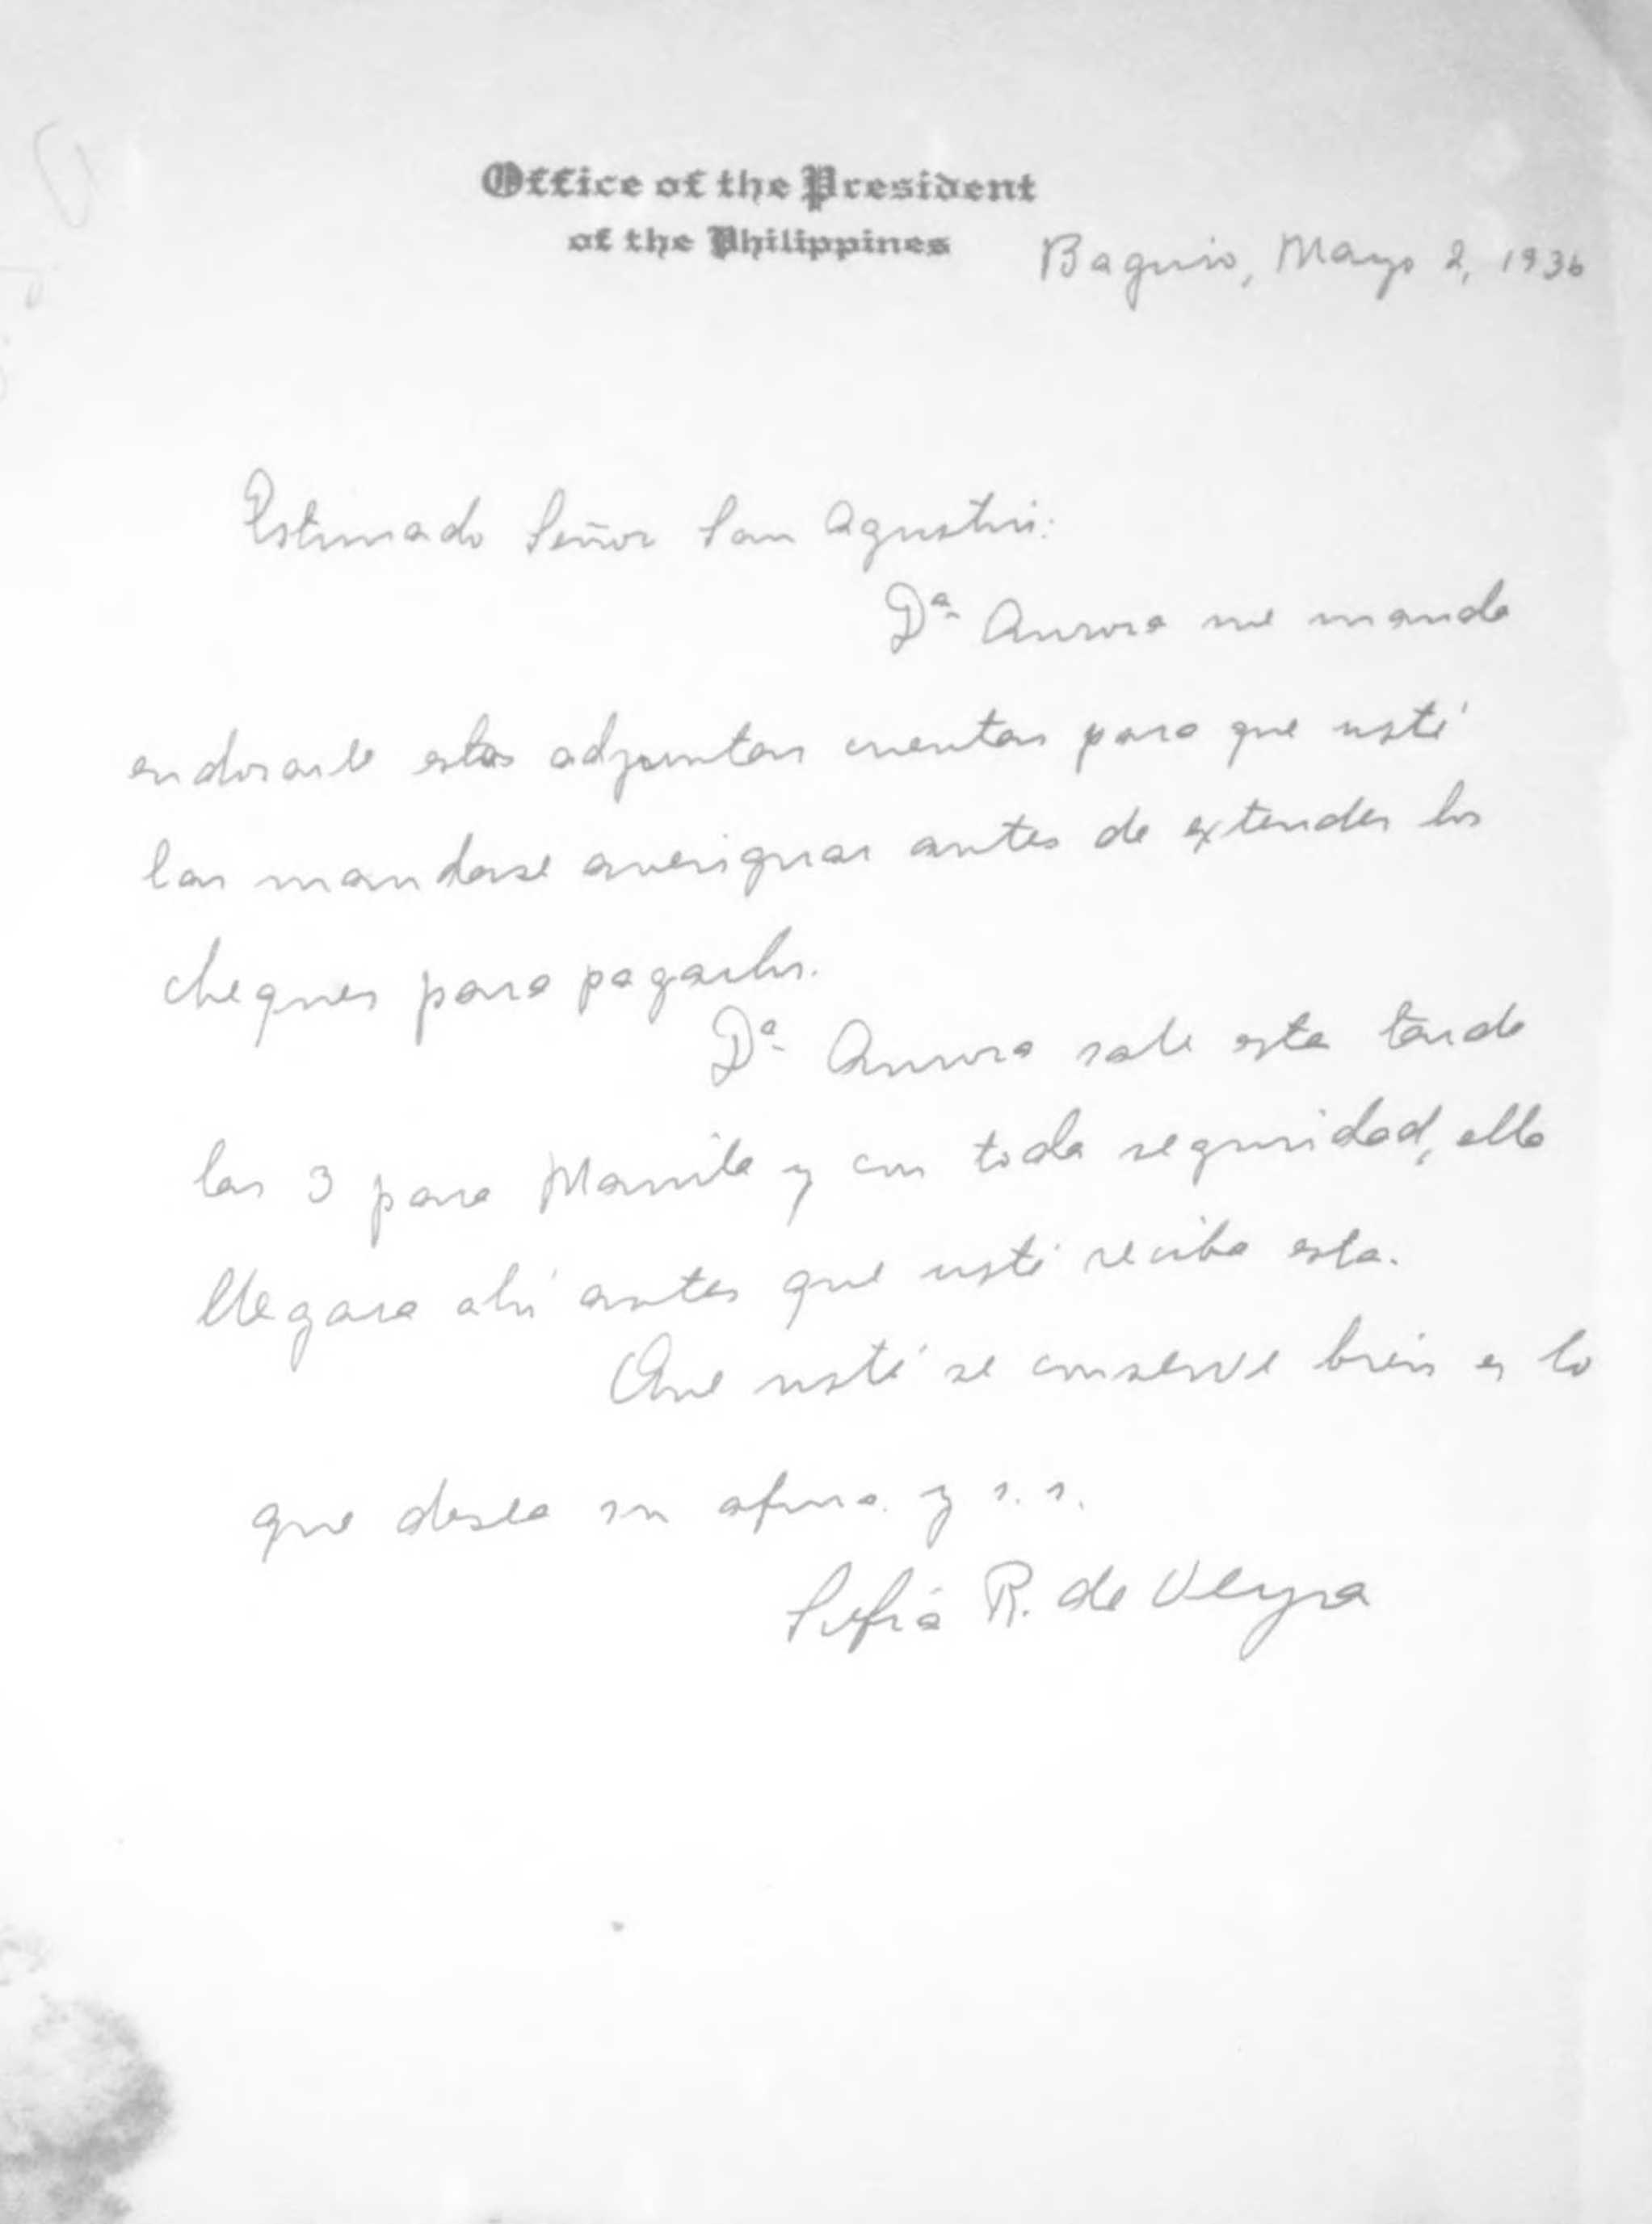 Office of the President
of the Philippines
Baguio, Mayo 2, 1936
Estimado Señor San Agustin:
Dª Aurora me manda
endosarle estas adjuntas cuentas para que usté
las mandase averiguar antes de extender los
cheques para pagarlos.
Dª Aurora sale esta tarde
las 3 para Manila y con toda seguridad, ella
llegara ahí antes que usté reciba esta.
Que usté se conserve bien es lo
que desea su afma. y s. s.
Sofia R. de Veyra